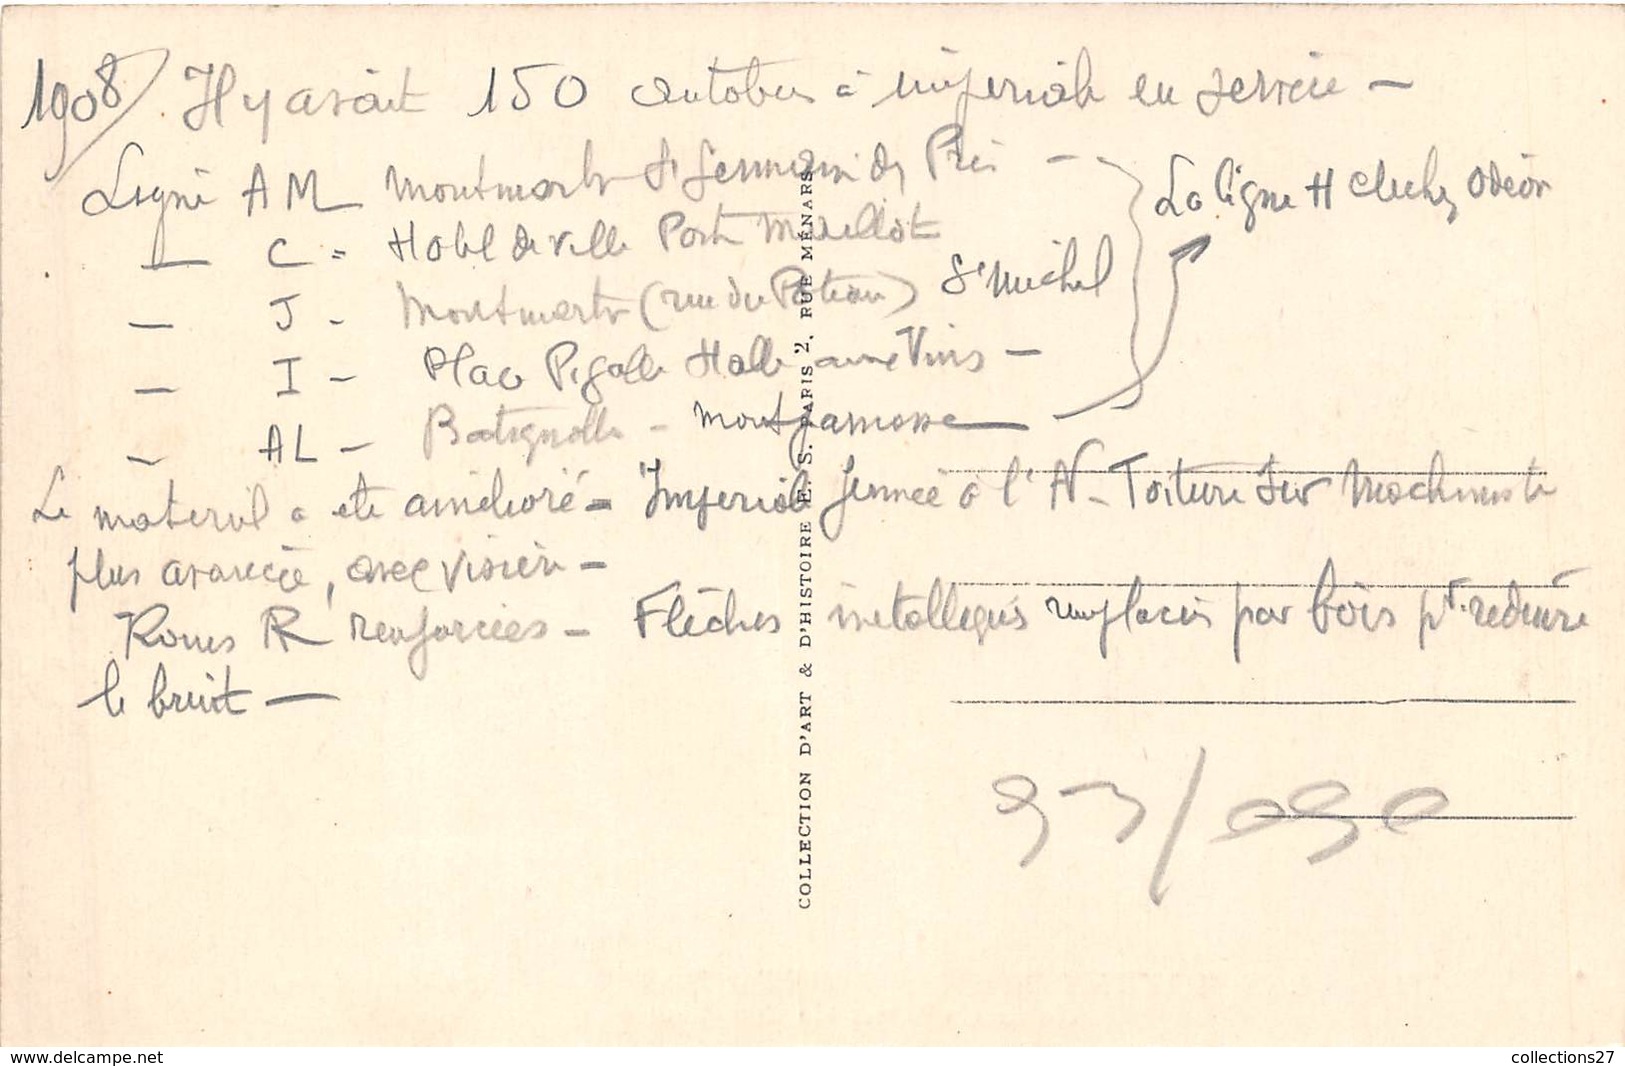 1908/ Il y avait 150 autobus à impériale en service —
Ligne AM Montmartre St Germain des Prés —
— C - Hotel de Ville Porte Maillot
— J - Montmartre (rue du Poteau) St Michel
— I - Place Pigalle Halle aux Vins —
— AL - Batignolle - Montparnasse —
La ligne H Clichy Odéon
Le materiel a ete amélioré - Imperiale fermée à l'AV - Toiture sur Machiniste
plus avancée, avec visière -
Roues AR renforcées - Flèches metalliques remplacées par bois pr. reduire
le bruit —
COLLECTION D'ART & D'HISTOIRE E. S. PARIS 2, RUE MÉNARS
93/090
www.delcampe.net
collections27